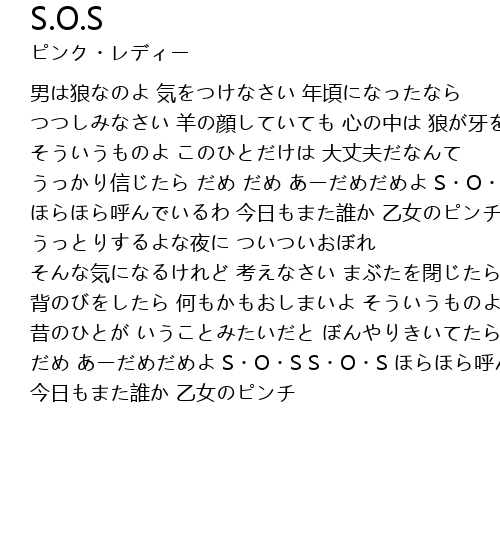 S.O.S
ピンク・レディー
男は狼なのよ 気をつけなさい 年頃になったなら
つつしみなさい 羊の顔していても 心の中は 狼が牙を
そういうものよ このひとだけは 大丈夫だなんて
うっかり信じたら だめ だめ あーだめだめよ S・O・
ほらほら呼んでいるわ 今日もまた誰か 乙女のピンチ
うっとりするよな夜に ついついおぼれ
そんな気になるけれど 考えなさい まぶたを閉じたら
背のびをしたら 何もかもおしまいよ そういうものよ
昔のひとが いうことみたいだと ぼんやりきいてたら
だめ あーだめだめよ S・O・S S・O・S ほらほら呼ん
今日もまた誰か 乙女のピンチ